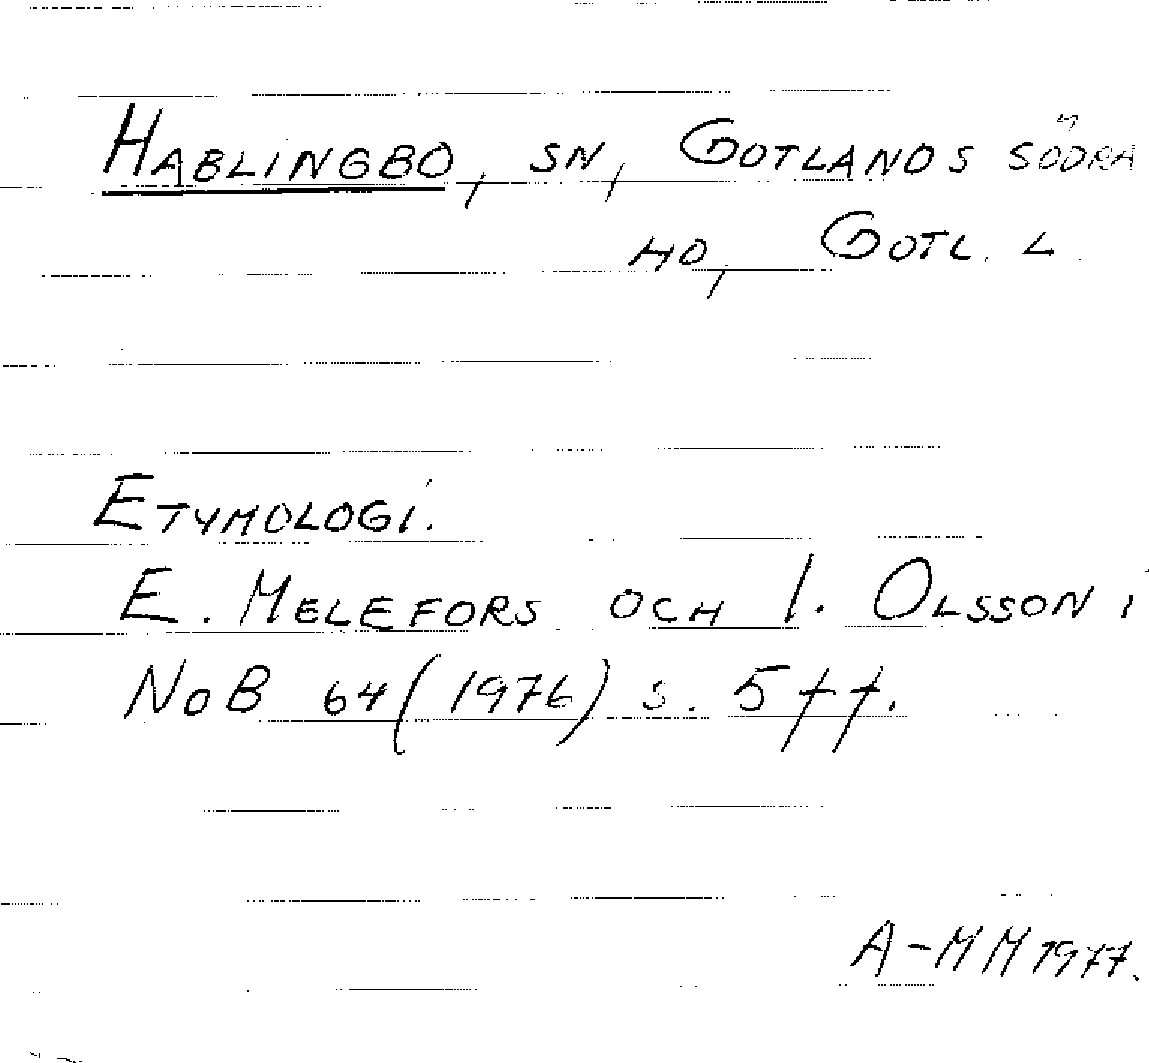 HABLINGBO, SN, GOTLANDS SÖDRA
HD, GOTL. L.
ETYMOLOGI.
E. MELEFORS OCH I. OLSSON i
NoB 64 (1976) s. 5 ff.
A-MM 1977.